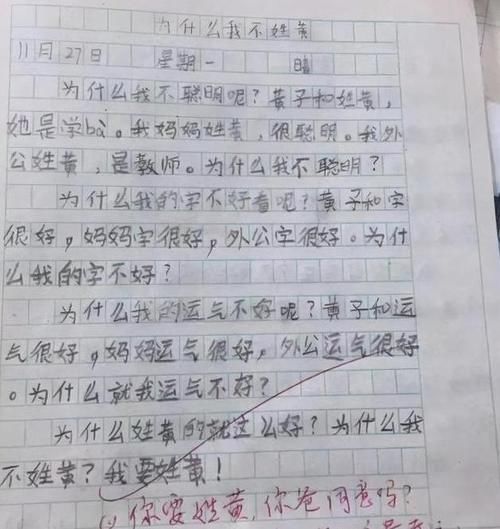 为什么我不姓黄
11月27日 星期一 晴
为什么我不聪明呢？黄子和姓黄，
她是学bà。我妈妈姓黄，很聪明。我外
公姓黄，是教师。为什么我不聪明？
为什么我的字不好看呢？黄子和字
很好，妈妈字很好，外公字很好。为什
么我的字不好？
为什么我的运气不好呢？黄子和运
气很好，妈妈运气很好，外公运气很好
。为什么就我运气不好？
为什么姓黄的就这么好？为什么我
不姓黄？我要姓黄！
你要姓黄，你爸同意吗？